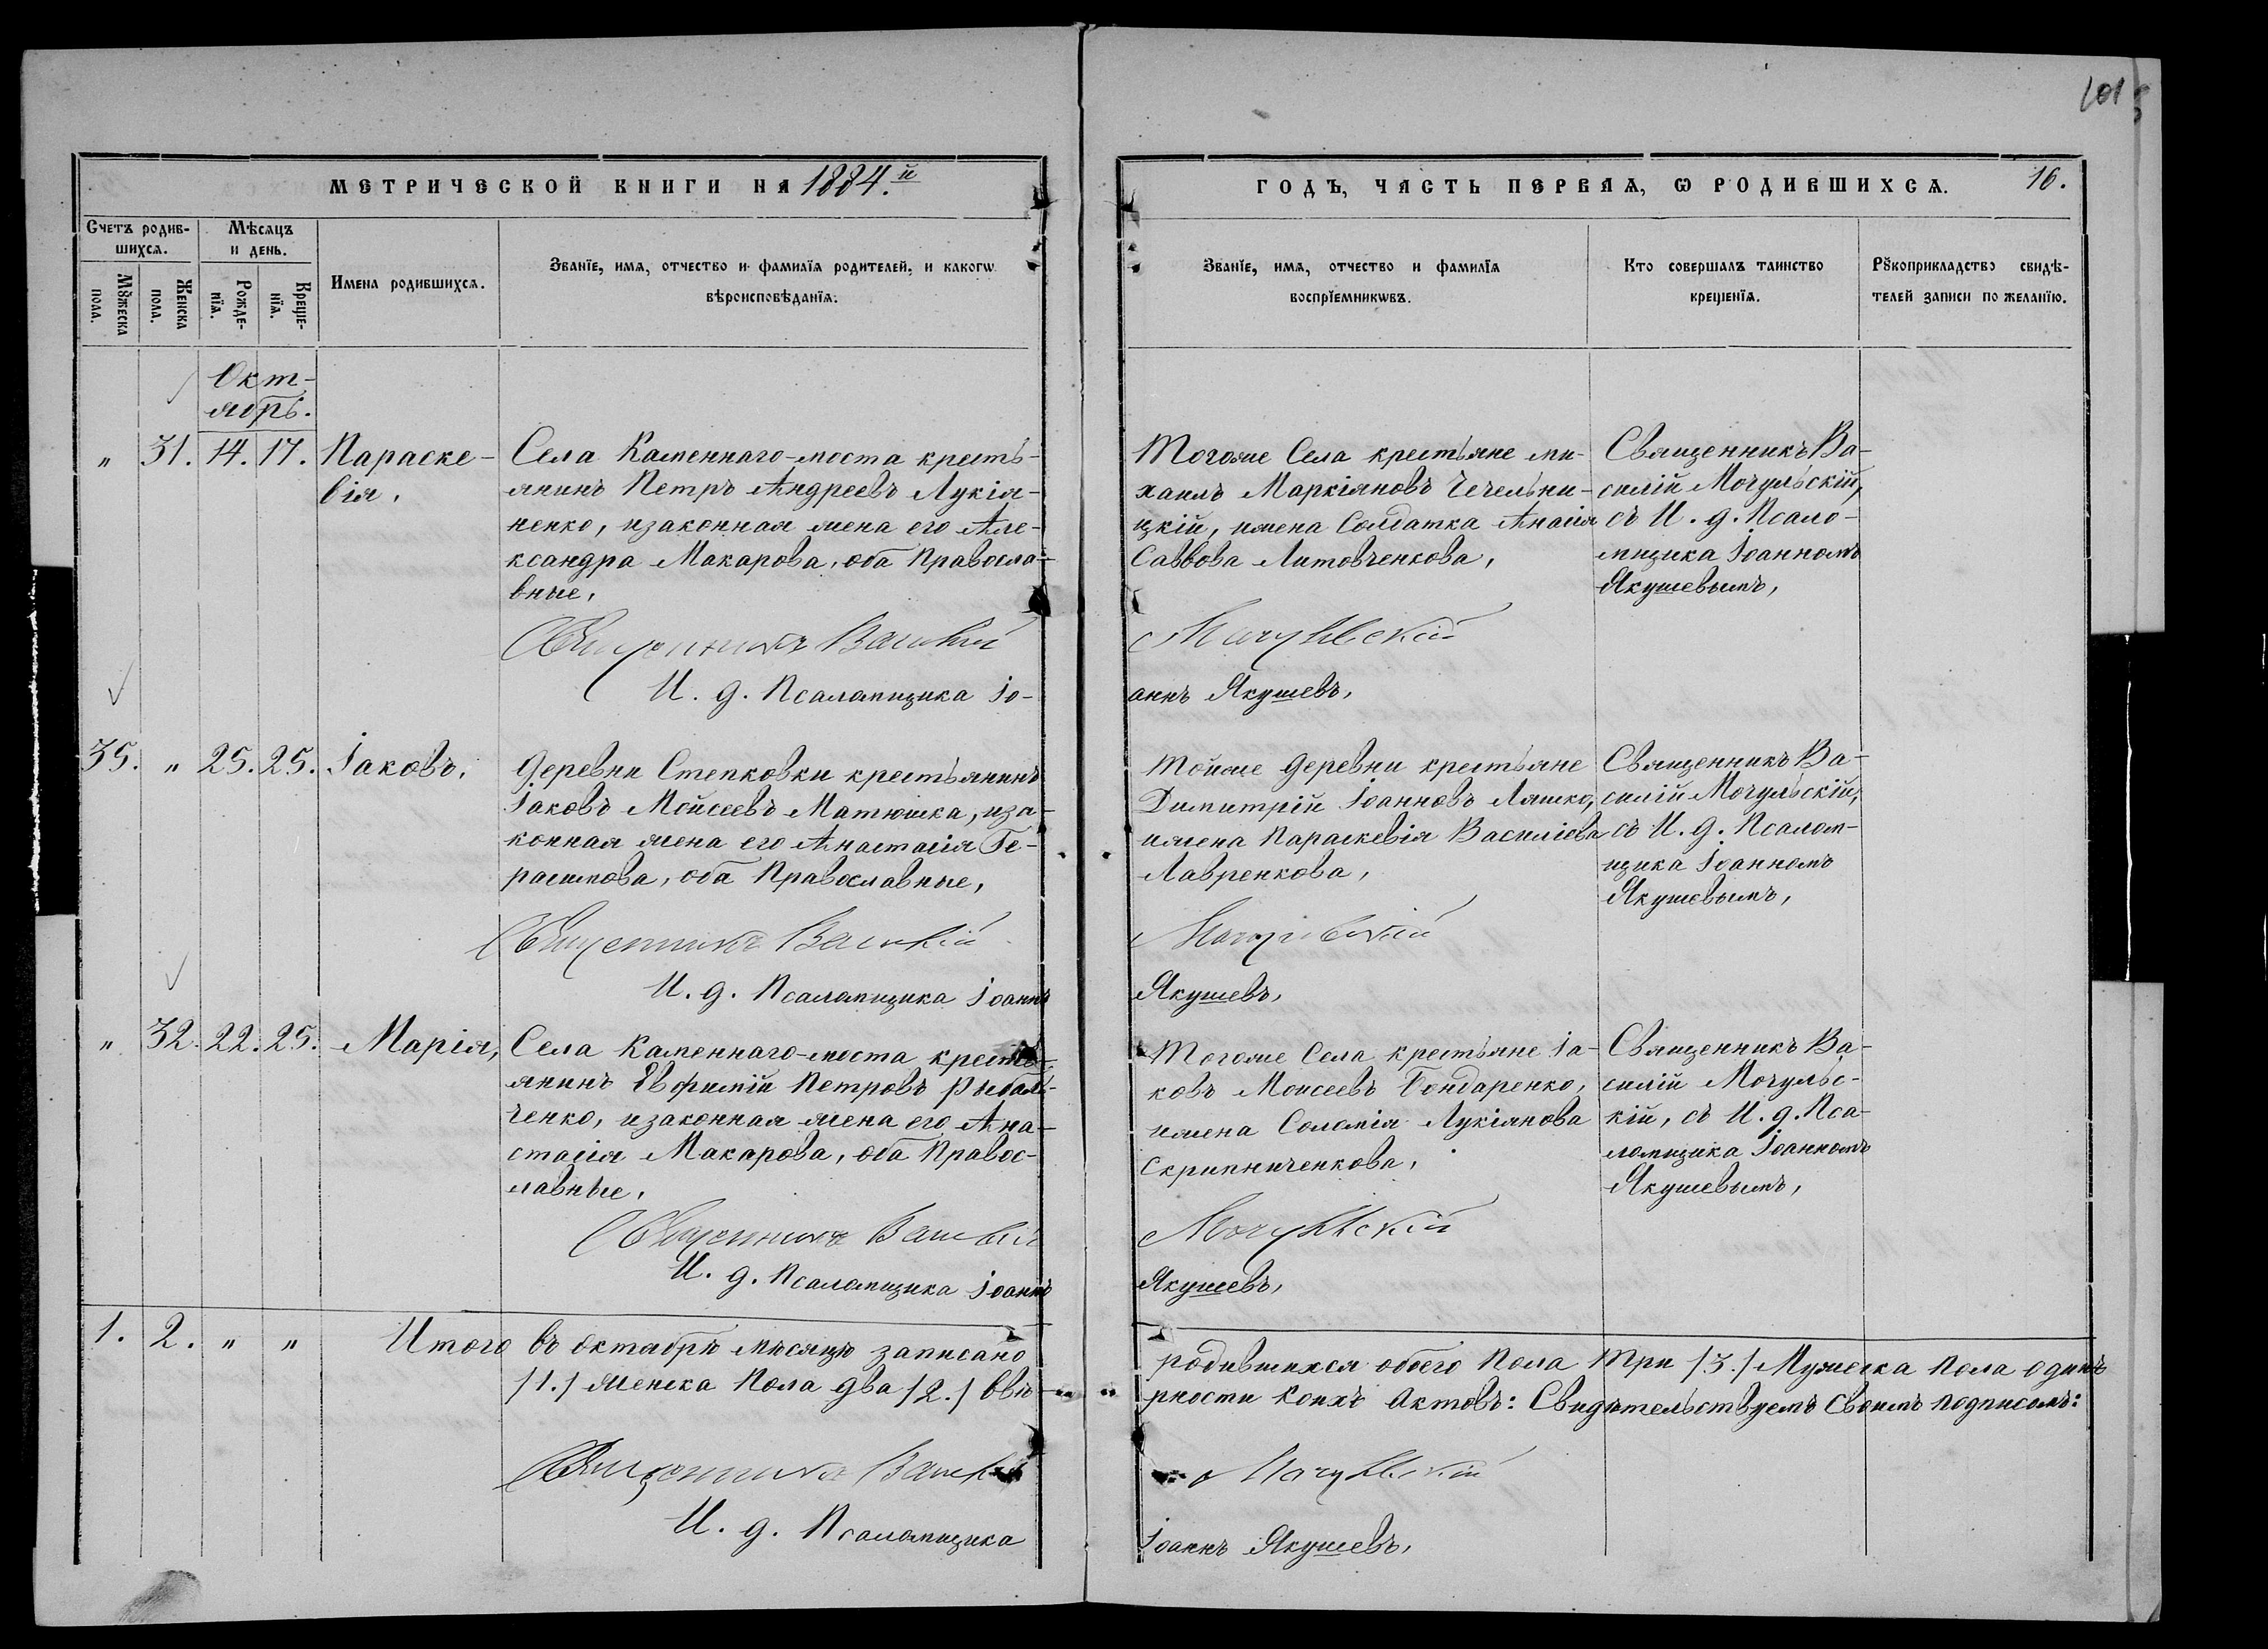 101
МЕТРИЧЕСКОЙ КНИГИ НА 1884.й
ГОДЪ, ЧАСТЬ ПЕРВАЯ, Ѡ РОДИВШИХСЯ. 16.
Счетъ родив-
шихсѧ.
Мѣсѧцъ
и день.
Мꙋжеска
пола.
Женска
пола.
Рожде-
нїѧ.
Креще-
нїѧ.
Имена родившихсѧ.
Званїе, имѧ, отчество и фамилїѧ родителей, и какогѡ
вѣроисповѣданїѧ.
Званїе, имѧ, отчество и фамилїѧ
воспрїемникѡвъ.
Кто совершалъ таинство
крещенїѧ.
Рꙋкоприкладство свидѣ-
телей записи по желанїю.
Окт-
ябрь.
" 31. 14. 17. Параске-
вія,
Села Каменнаго-моста кресть-
янинъ Петръ Андреевъ Лукія-
ненко, изаконная жена его Але-
ксандра Макарова, оба Правосла-
вные,
Священникъ Василій
И. д. Псаломщика Іо-
Тогоже Села крестьяне ми-
хаилъ Маркіяновъ Чечельни-
цкій, ижена Солдатка Анасія
Саввова Литовченкова,
Мочульскій
аннъ Якушевъ,
Священникъ Ва-
силій Мочульскій,
съ И. д. Псало-
мщика Іоанномъ
Якушевымъ,
35. " 25. 25. Іаковъ,
Деревни Степковки крестьянинъ
Іаковъ Мойсеевъ Матюшка, иза-
конная жена его Анастасія Ге-
расимова, оба Православные,
Священникъ Василій
И. д. Псаломщика Іоаннъ
Тойже Деревни крестьяне
Димитрій Іоанновъ Ляшко,
ижена Параскевія Василіова
Лавренкова,
Мочульскій
Якушевъ,
Священникъ Ва-
силій Мочульскій,
съ И. д. Псалом-
щика Іоанномъ
Якушевымъ,
" 32. 22. 25. Марія,
Села Каменнаго-моста кресть-
янинъ Евфимій Петровъ Рыбаль-
ченко, изаконная жена его Ана-
стасія Макарова, оба Правос-
лавные,
Священникъ Василій
И. д. Псаломщика Іоаннъ
Тогоже Села крестьяне Іа-
ковъ Моисеевъ Бондаренко,
ижена Соломія Лукіянова
Скрипниченкова,
Мочульскій
Якушевъ,
Священникъ Ва-
силій Мочульс-
кій, съ И. д. Пса-
ломщика Іоанномъ
Якушевымъ,
1. 2. " " Итого въ октябрѣ мѣсяцѣ записано
/1./ Женска Пола два /2./ Ввѣ-
родившихся обоего Пола Три /3./ Мужеска Пола одинъ
рности коихъ Актовъ: Свидѣтельствуемъ Своимъ подписомъ:
Священникъ Василій
И. д. Псаломщика
Мочульскій
Іоаннъ Якушевъ,